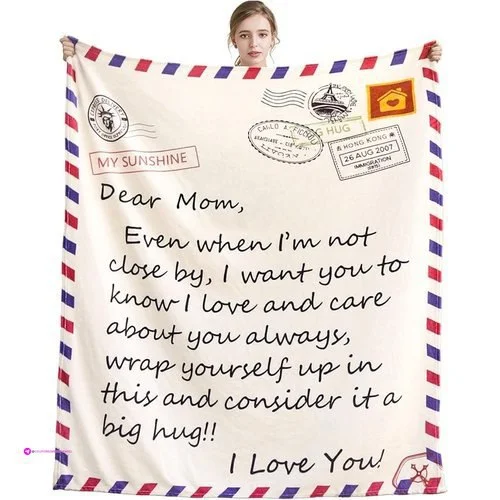 BIG HUG
HONG KONG
26 AUG 2007
IMMIGRATION
MY SUNSHINE
Dear Mom,
Even when I'm not
close by, I want you to
know I love and care
about you always,
wrap yourself up in
this and consider it a
big hug!!
I Love You!